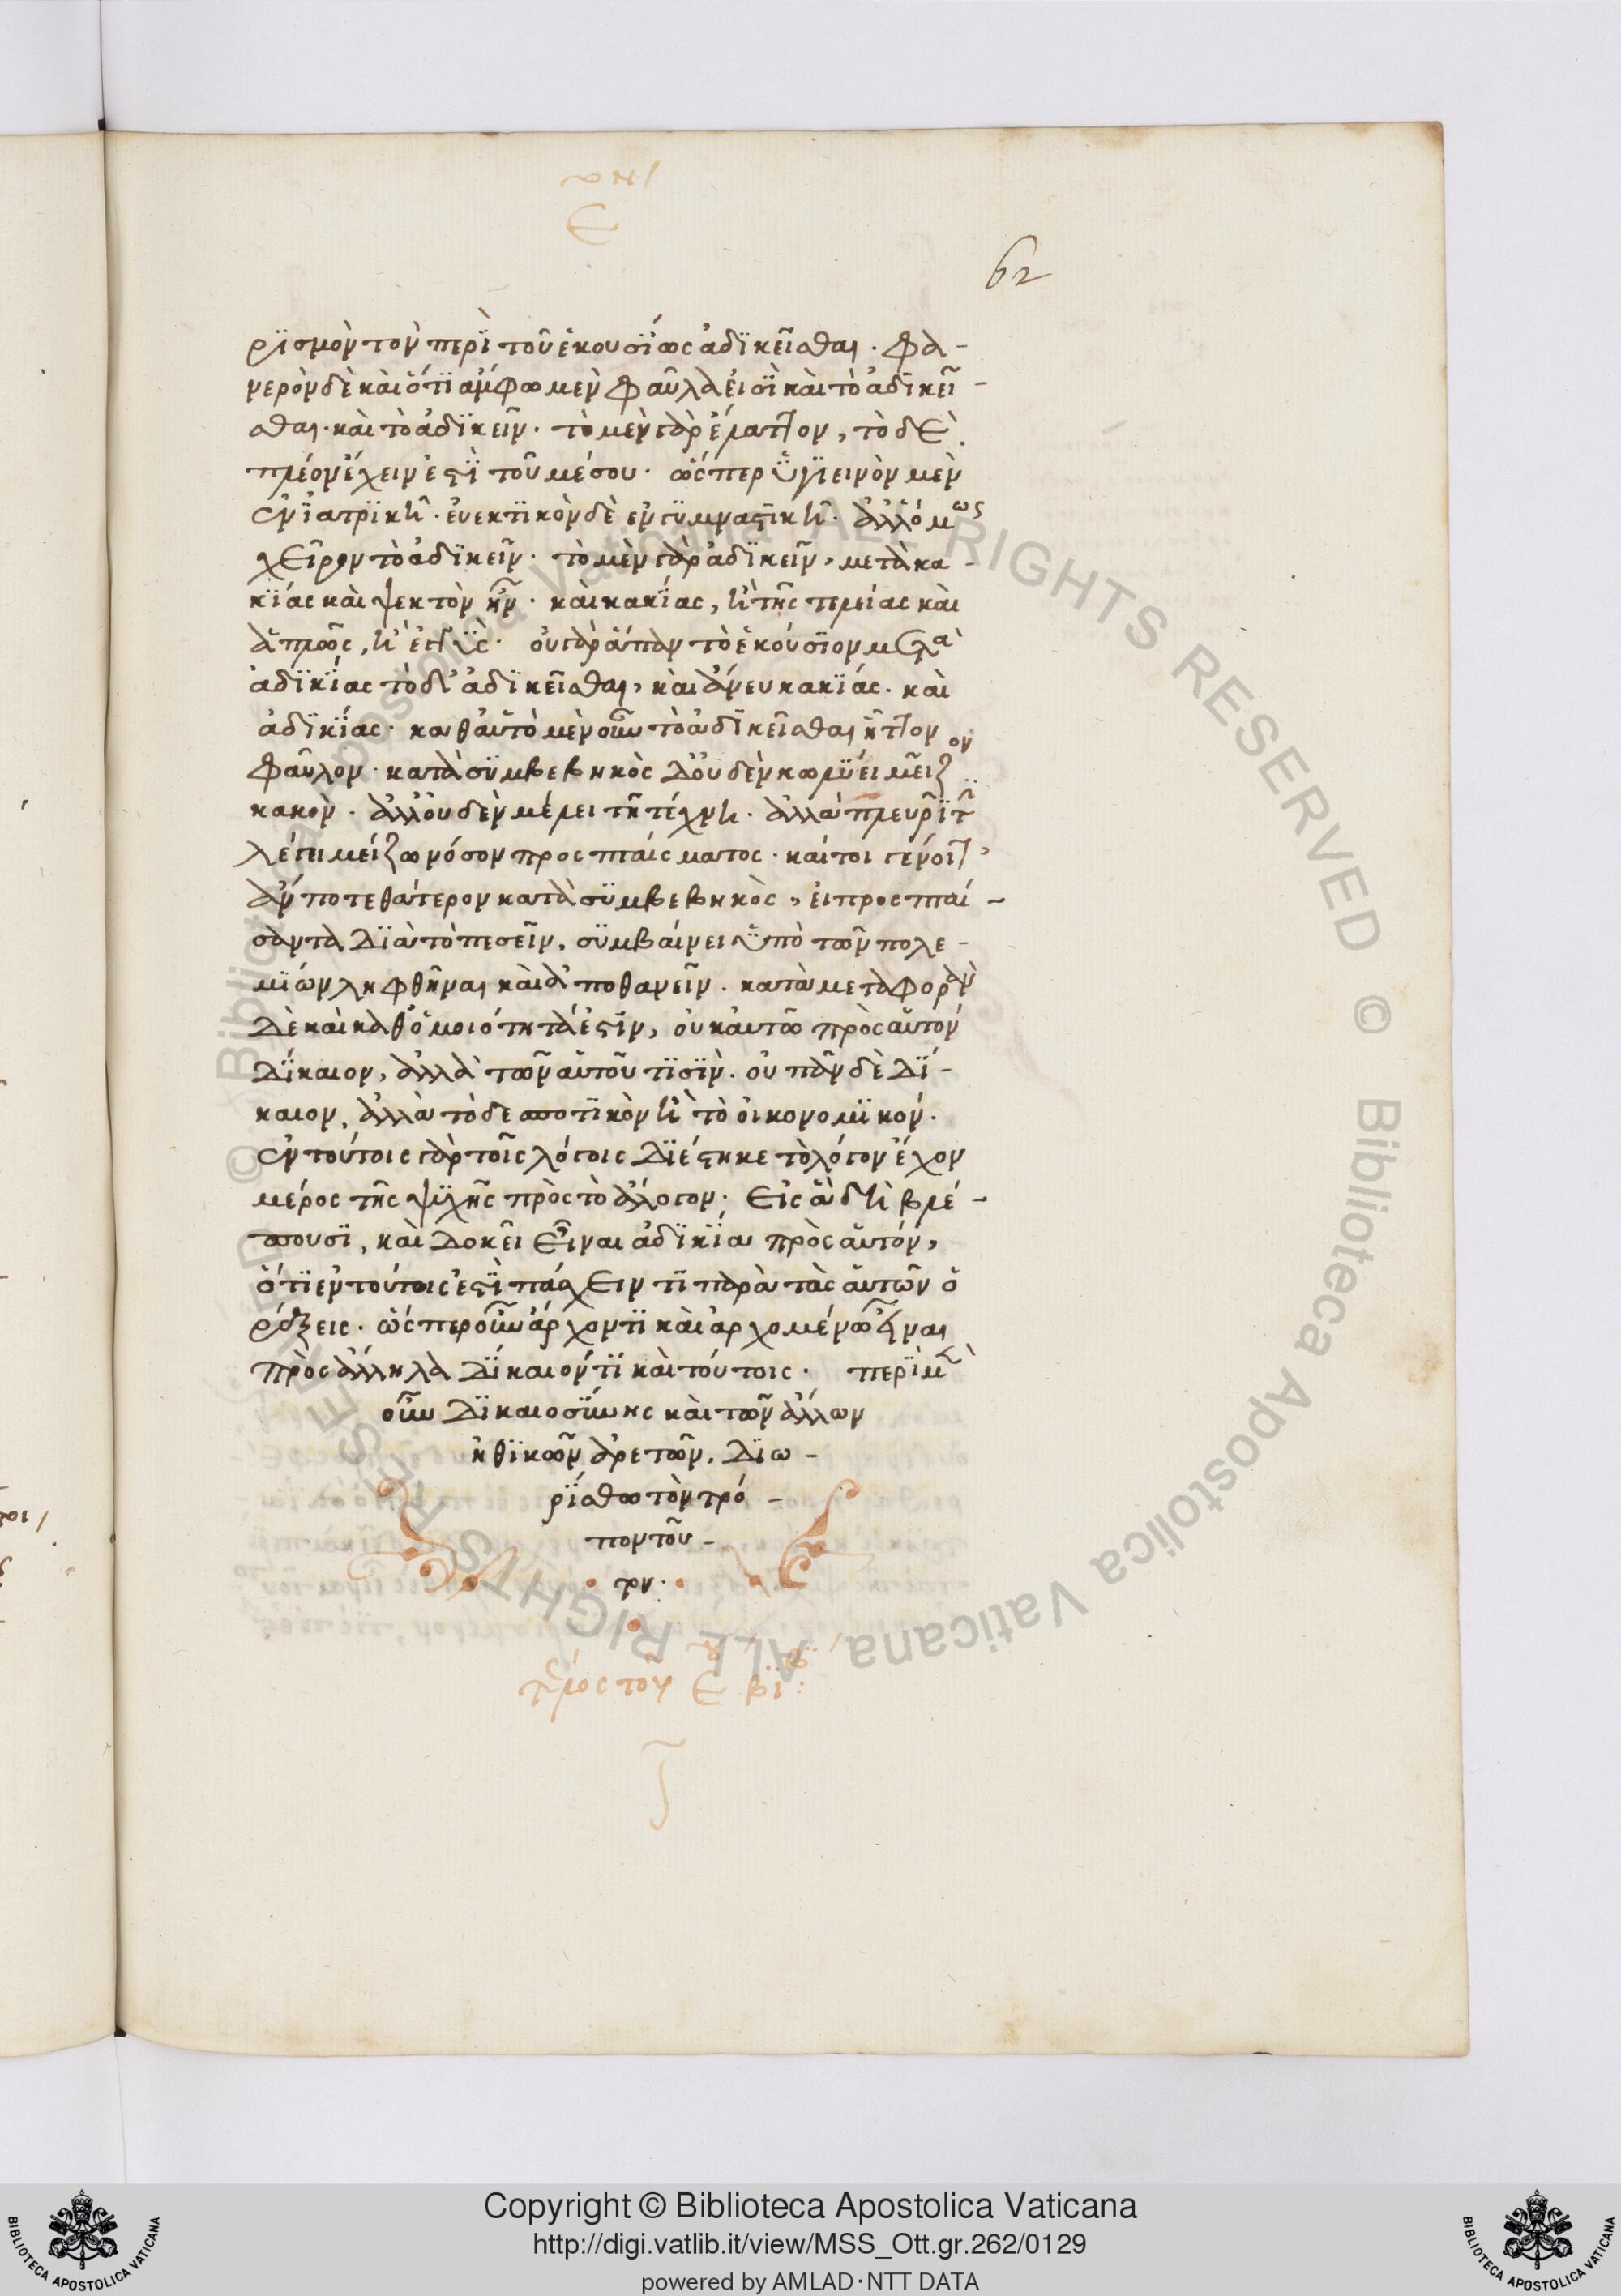 ε
62
ρϊσμὸν τὸν περῒ τοῦ ἑκουσΐως ἀδϊκεῖσθαι. φα-
νερὸν δὲ καὶ ὅτϊ ἄμφω μὲν φαῦλα εἰσῒ καὶ τὸ ἀδϊκεῖ-
σθαι. καὶ τὸ ἀδϊκεῖν. τὸ μὲν γὰρ ἔλαττον, τὸ δὲ
πλέον ἔχειν ἐστῒ τοῦ μέσου. ὥσπερ ὑγϊεινὸν μὲν
ἐν ἰατρϊκῆ. εὐεκτικὸν δὲ ἐν γϋμναστϊκῆ. ἀλλ' ὅμως
χεῖρον τὸ ἀδϊκεῖν. τὸ μὲν γὰρ ἀδϊκεῖν, μετὰ κα-
κΐας καὶ ψεκτὸν ἦν. καὶ κακΐας, ἢ τῆς τελείας καὶ
ἁπλῶς, ἢ ἐγγὺς. οὐ γὰρ ἅπαν τὸ ἑκούσϊον μετὰ
ἀδϊκΐας τὸ δ' ἀδϊκεῖσθαι, καὶ ἄνευ κακϊάς. καὶ
ἀδϊκΐας. καθ' αὑτὸ μὲν οὖν τὸ ἀδϊκεῖσθαι ἧττον
φαῦλον. κατὰ σϋμβεβηκὸς δ' οὐδὲν κωλϋει μεῖζον
κακὸν. ἀλλ' οὐδὲν μέλει τῆ τέχνη. ἀλλὰ πλευρῖτϊν
λέγει μείζω νόσον προσπταίσματος. καίτοι γένοιτ'
ἄν ποτε θάτερον κατὰ σϋμβεβηκὸς, εἰ προσπταί-
σαντα δϊὰ τὸ πεσεῖν, σϋμβαίνει ὑπὸ τῶν πολε-
μϊών ληφθῆναι καὶ ἀποθανεῖν. κατὰ μεταφορὰν
δὲ καὶ καθ' ὁμοιότητά ἐστϊν, οὐκ αὐτῶ πρὸς αὑτόν
δΐκαιον, ἀλλὰ τῶν αὑτοῦ τϊσϊν. οὐ πᾶν δὲ δΐ-
καιον, ἀλλὰ τὸ δεσποτϊκὸν ἢ τὸ οἰκονομϊκόν.
ἐν τούτοις γὰρ τοῖς λόγοις δϊέστηκε τὸ λόγον ἔχον
μέρος τῆς ψϋχῆς πρὸς τὸ ἄλογον. Εἰς ἃ δὴ βλέ-
πουσϊ, καὶ δοκεῖ εἶναι ἀδϊκΐα πρὸς αὑτόν,
ὅτϊ ἐν τούτοις ἐστῒ πάσχειν τϊ παρὰ τὰς αὑτῶν ὀ
ρέξεις. ὥσπερ οὖν ἄρχοντϊ καὶ ἀρχομένω εἶναι
πρὸς ἄλληλα δΐκαιόν τϊ καὶ τούτοις. περῒ μὲν
οὖν δϊκαιοσΰνης καὶ τῶν ἄλλων
ἠθϊκῶν ἀρετῶν, δϊω-
ρΐσθω τὸν τρό-
πον τοῦ-
τον.
τέλος τοῦ ε βϊ: